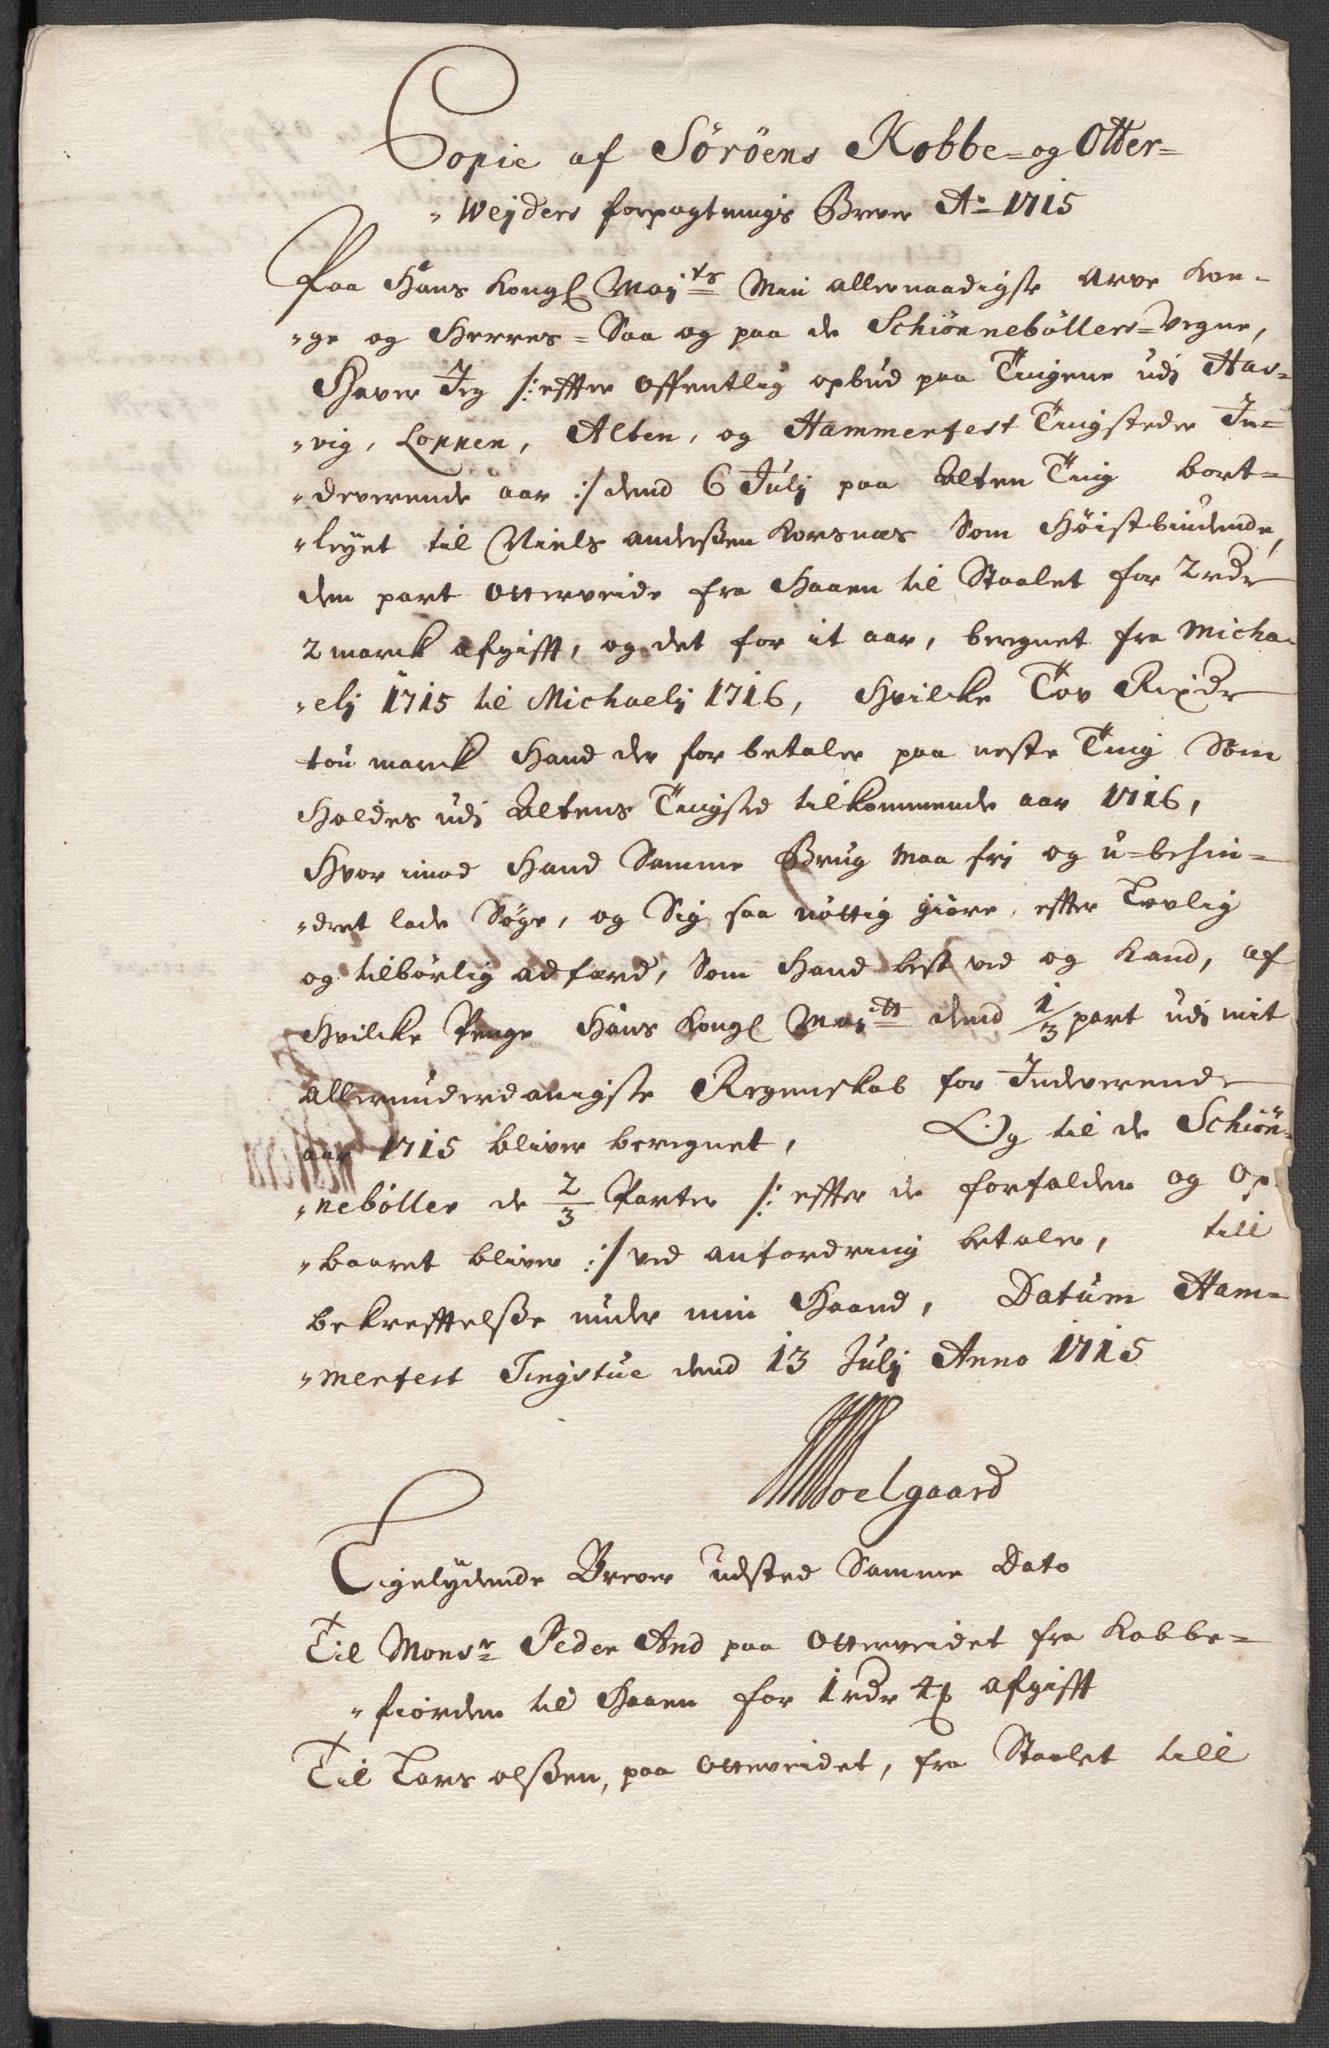 Copie af Söröens Kobbe- og Otter-
"Weijders forpagtnings Brever Ao 1715
Paa Hans Kongl Mayts Min allernaadigste Arve Kon-
"ge og Herres- Saa og paa de Schiönnebøllers- Vegne,
Haver Jeg /: effter offentlig opbud paa Tingene udj Has-
"vig, Loppen, Alten, og Hammerfest Tingsteder In-
"deverende aar :/ dend 6 Julij paa Alten Ting bort-
"leyet til Niels Anderßen Korsnæs Som Höistbiudende,
den part Otterveide fra Haaen til Staalet for 2 rdr
2 marck afgifft, og det for it aar, beregnet fra Micha-
"elij 1715 til Michaelij 1716, Hvilcke Tov Rixdr
tou marck Hand der for betaler paa neste Ting Som
Holdes udj Altens Tingsted tilkommende aar 1716,
Hvor imod Hand Samme Brug maa frj og u-behin-
"dret lade Søge, og Sig saa nöttig giöre, effter Lovlig
og tilbörlig adfærd, Som Hand best ved og Kand, af
Hvilcke Penge Hans Kongl Maytt dend 1/3 part udj mit
allerunderdanigste Regenskab for Indeverende
aar 1715 bliver beregnet, Og til de Schiön-
"nebøller de 2/3 Parter /: effter de forfalden og Op-
"baaret bliver :/ ved anfordring betaler, till
bekrefftelße under min Haand, Datum Ham-
"merfest Tingstue dend 13 Julij Anno 1715
Noelgaard
Ligelydende Brever udsted Samme Dato
Til Monsr Peder And paa Otterveidet fra Kobbe-
"fiorden til Haaen for 1 rdr 4 ß afgifft
Til Lars Olßen, paa Otteveidet, fra Staalet till